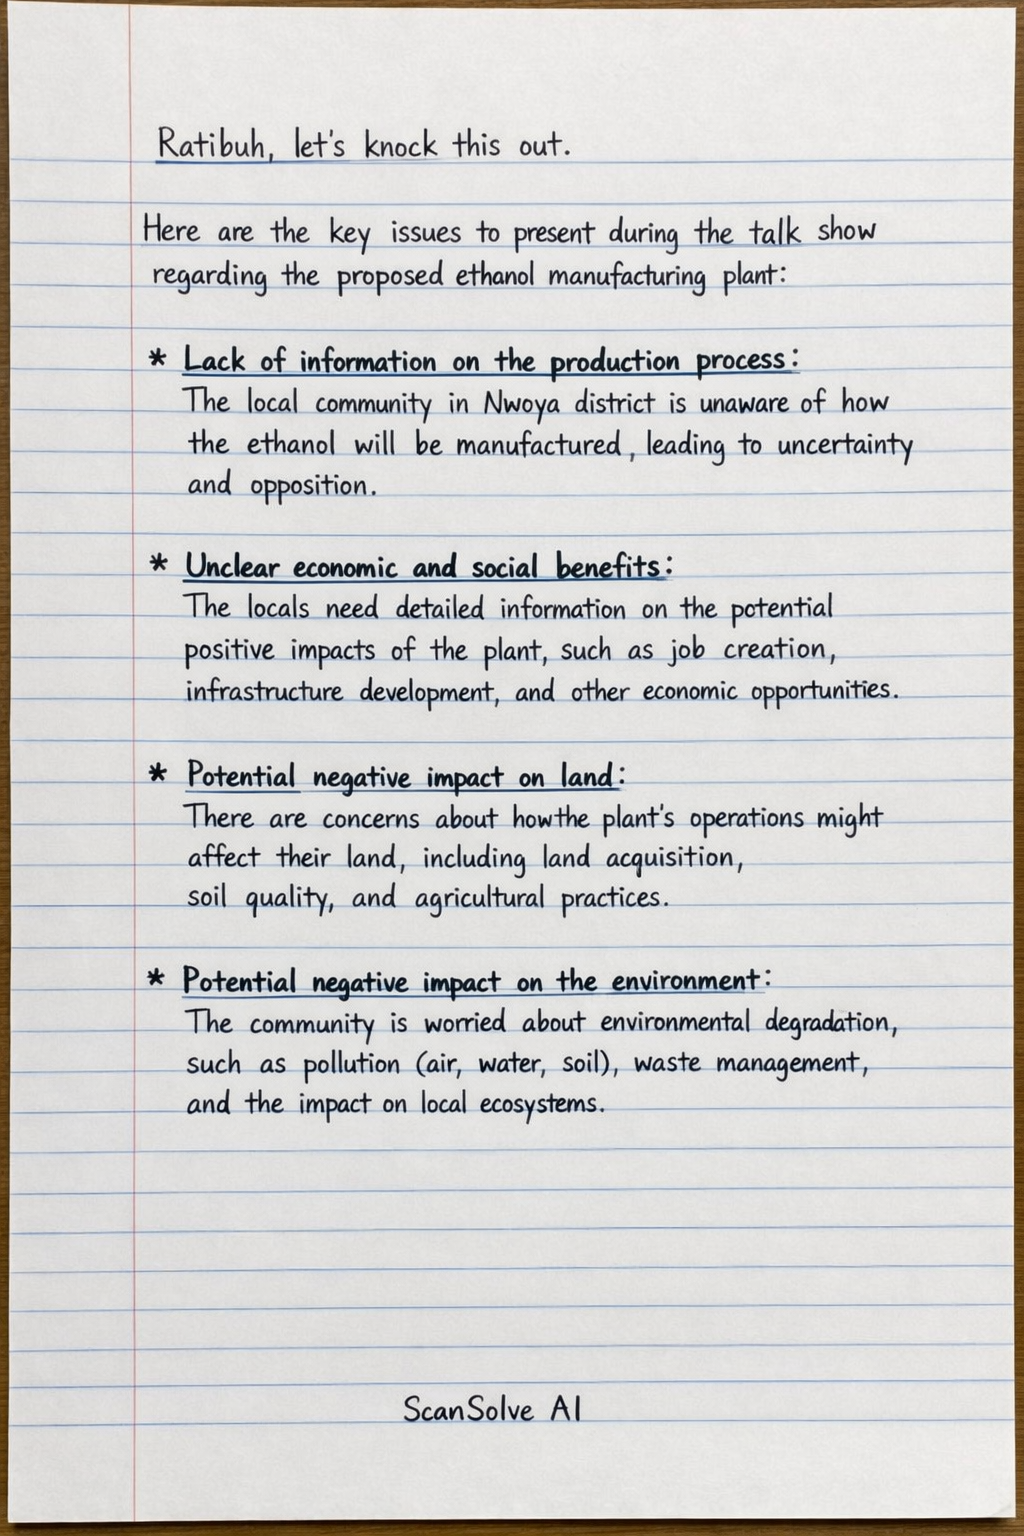 Ratibuh, let's knock this out.
Here are the key issues to present during the talk show
regarding the proposed ethanol manufacturing plant:
* Lack of information on the production process:
The local community in Nwoya district is unaware of how
the ethanol will be manufactured, leading to uncertainty
and opposition.
* Unclear economic and social benefits:
The locals need detailed information on the potential
positive impacts of the plant, such as job creation,
infrastructure development, and other economic opportunities.
* Potential negative impact on land:
There are concerns about howthe plant's operations might
affect their land, including land acquisition,
soil quality, and agricultural practices.
* Potential negative impact on the environment:
The community is worried about environmental degradation,
such as pollution (air, water, soil), waste management,
and the impact on local ecosystems.
ScanSolve AI